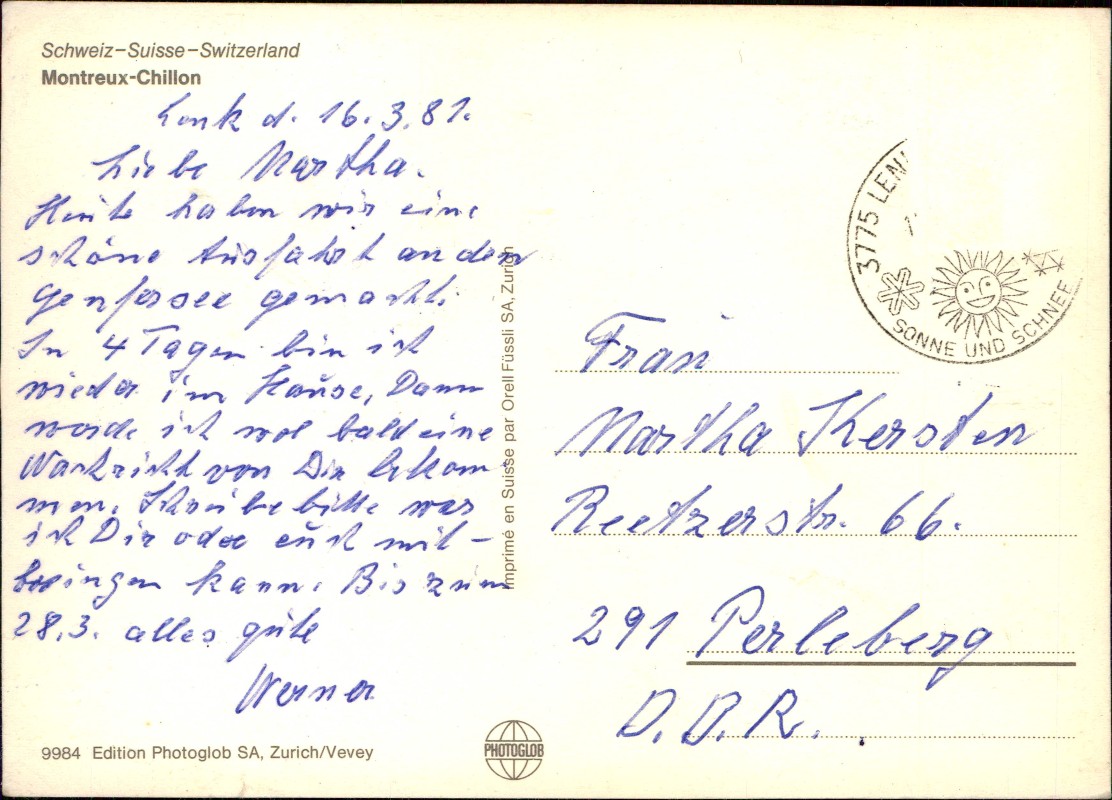 Schweiz–Suisse–Switzerland
Montreux-Chillon
Lenk d. 16.3.81.
Liebe Martha.
Heute haben wir eine
schöne Ausfahrt an den
Genfersee gemacht.
In 4 Tagen bin ich
wieder im Hause, Dann
werde ich wol bald eine
Nachricht von Dir bekom-
men. Schreibe bitte was
ich Dir oder euch mit-
bringen kann. Bis zum
28.3. alles gute
Werner
9984 Edition Photoglob SA, Zurich/Vevey
Imprimé en Suisse par Orell Füssli SA, Zurich
PHOTOGLOB
3775 LEN
SONNE UND SCHNEE
Frau
Martha Kersten
Reetzerstr. 66.
291 Perleberg
D.D.R.